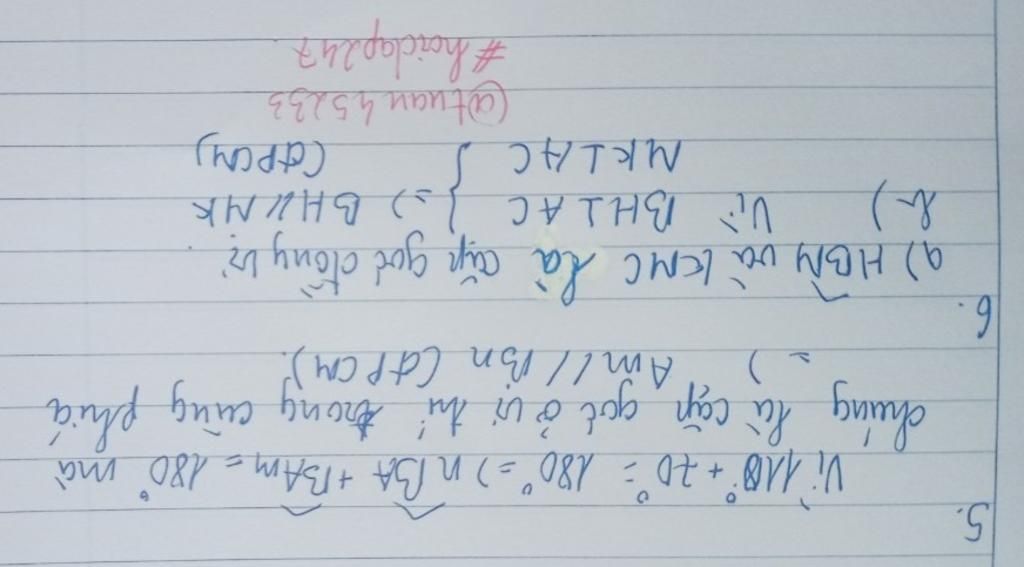 5.
Vì 110° + 70° = 180° => nBA + BAm = 180° mà
chúng là cặp góc ở vị trí trong cùng phía
=> Am // Bn (ĐPCM).
6.
a) HBM và KMC là cặp góc đồng vị.
b) Vì BH⊥AC } => BH // MK
MK⊥AC } (ĐPCM)
@tuan45233
#hoidap247